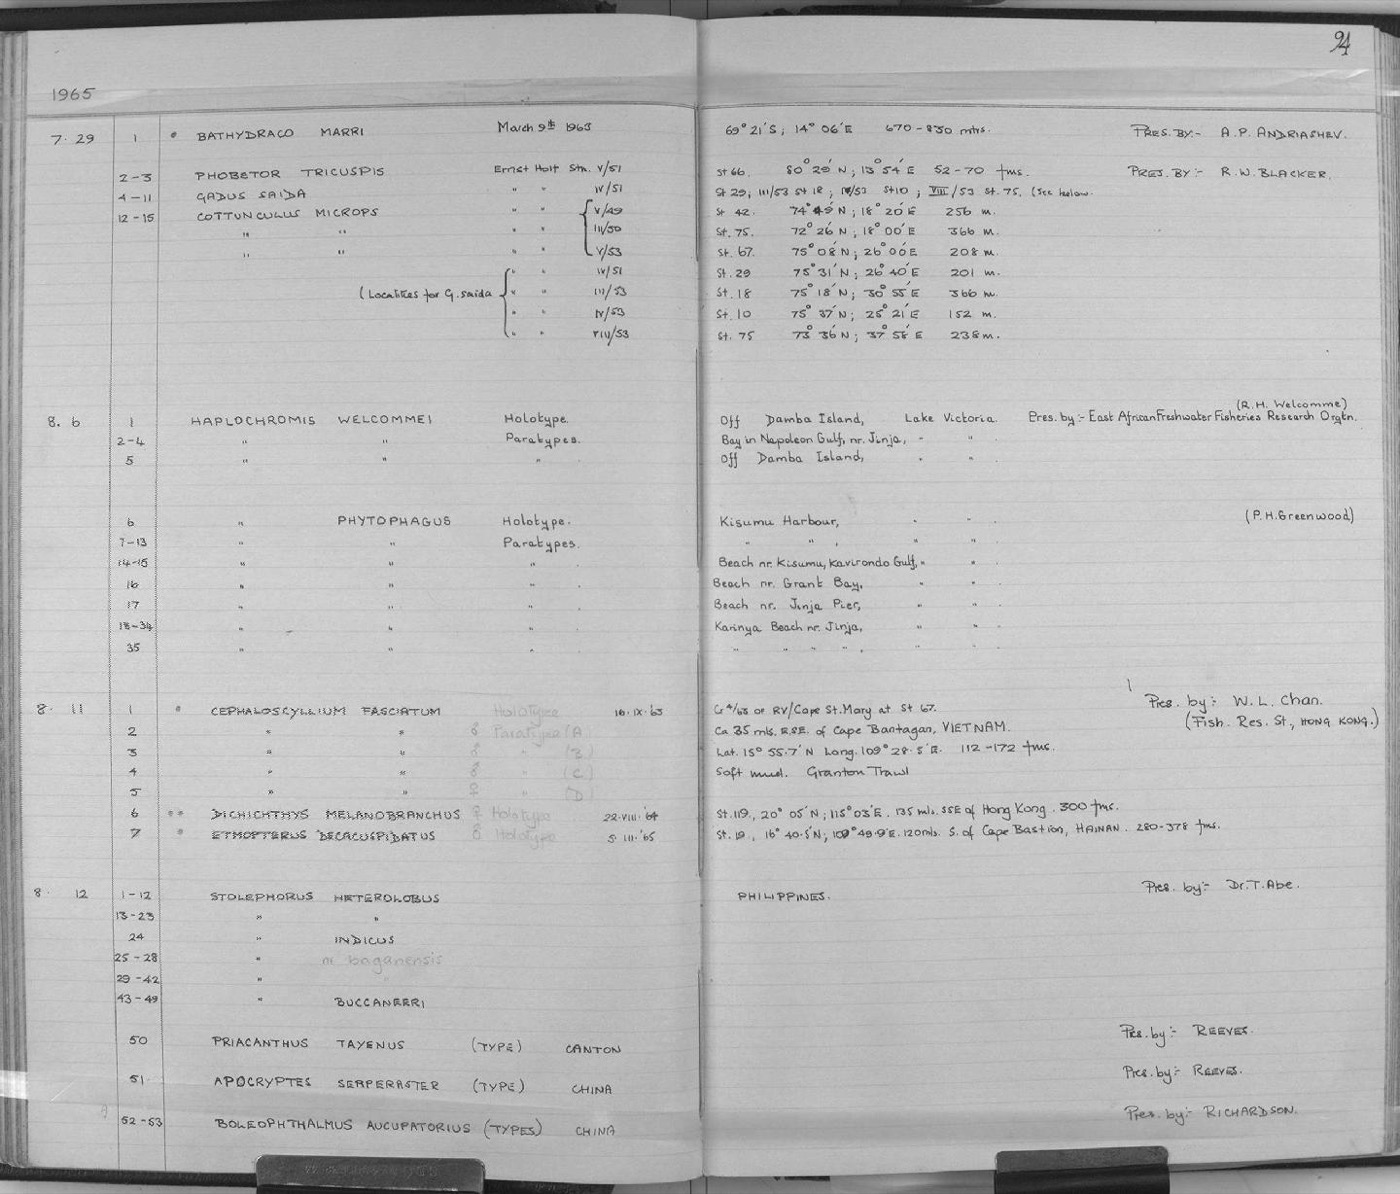 94
1965
7. 29 1 * BATHYDRACO MARRI March 9th 1963 69° 21´S; 14° 06´E 670-830 mtrs. PRES. BY:- A.P. ANDRIASHEV.
2-3 PHOBETOR TRICUSPIS Ernst Holt Stn. V/51 St 66. 80° 29´N; 13° 54´E 52-70 fms. PRES. BY:- R.W. BLACKER.
4-11 GADUS SAIDA " " IV/51 St 29; III/53 St 18; IV/53 St10; VIII/53 St. 75. (See below.
12-15 COTTUNCULUS MICROPS " " V/49 St 42. 74° 49´N; 18° 20´E 256 m.
" " " " III/50 St. 75. 72° 26´N; 18° 00´E 366 m.
" " " " V/53 St. 67. 75° 08´N; 26° 00´E 208 m.
" " IV/51 St. 29 75° 31´N; 26° 40´E 201 m.
(Localities for G. saida " " III/53 St. 18 75° 18´N; 30° 55´E 366 m.
" " IV/53 St. 10 75° 37´N; 25° 21´E 152 m.
" " VIII/53 St. 75 73° 36´N; 37° 58´E 238 m.
(R.H. Welcomme)
8. 6 1 HAPLOCHROMIS WELCOMMEI Holotype. Off Damba Island, Lake Victoria. Pres. by:- East African Freshwater Fisheries Research Orgtn.
2-4 " " Paratypes. Bay in Napoleon Gulf, nr. Jinja, " "
5 " " " . Off Damba Island, " " .
6 " PHYTOPHAGUS Holotype. Kisumu Harbour, " " . (P.H. Greenwood)
7-13 " " Paratypes. " " , " " .
14-15 " " " . Beach nr. Kisumu, Kavirondo Gulf, " " .
16 " " " . Beach nr. Grant Bay, " " .
17 " " " . Beach nr. Jinja Pier, " " .
18-34 " " " Karinya Beach nr. Jinja, " " .
35 " " " . " " " " , " " .
8. 11 1 * CEPHALOSCYLLIUM FASCIATUM Holotype 16.IX.'63 Cr 4/63 of RV/Cape St. Mary at St 67. Pres. by:- W.L. Chan.
2 " " ♂ Paratype (A Ca 35 mls. E.S.E. of Cape Bantagan, VIETNAM. (Fish. Res. St., HONG KONG.)
3 " " ♂ " (B) Lat. 15° 55.7´N Long. 109° 28.5´E. 112-172 fms.
4 " " ♂ " (C) Soft mud. Granton Trawl
5 " " ♀ " (D)
6 ** DICHICHTHYS MELANOBRANCHUS ♀ Holotype 22.VIII.'64 St. 119, 20° 05´N; 115° 03´E. 135 mls. SSE of Hong Kong. 300 fms.
7 * ETMOPTERUS DECACUSPIDATUS ♂ Holotype 5.III.'65 St. 19, 16° 40.5´N; 109° 49.9´E. 120mls. S. of Cape Bastion, HAINAN. 280-378 fms.
8. 12 1-12 STOLEPHORUS HETEROLOBUS PHILIPPINES. Pres. by:- Dr. T. Abe.
13-23 " "
24 " INDICUS
25-28 " nr baganensis
29-42 "
43-49 " BUCCANEERI
50 PRIACANTHUS TAYENUS (TYPE) CANTON Pres. by:- REEVES.
51. APOCRYPTES SERPERASTER (TYPE) CHINA Pres. by:- REEVES.
52-53 BOLEOPHTHALMUS AUCUPATORIUS (TYPES) CHINA Pres. by:- RICHARDSON.